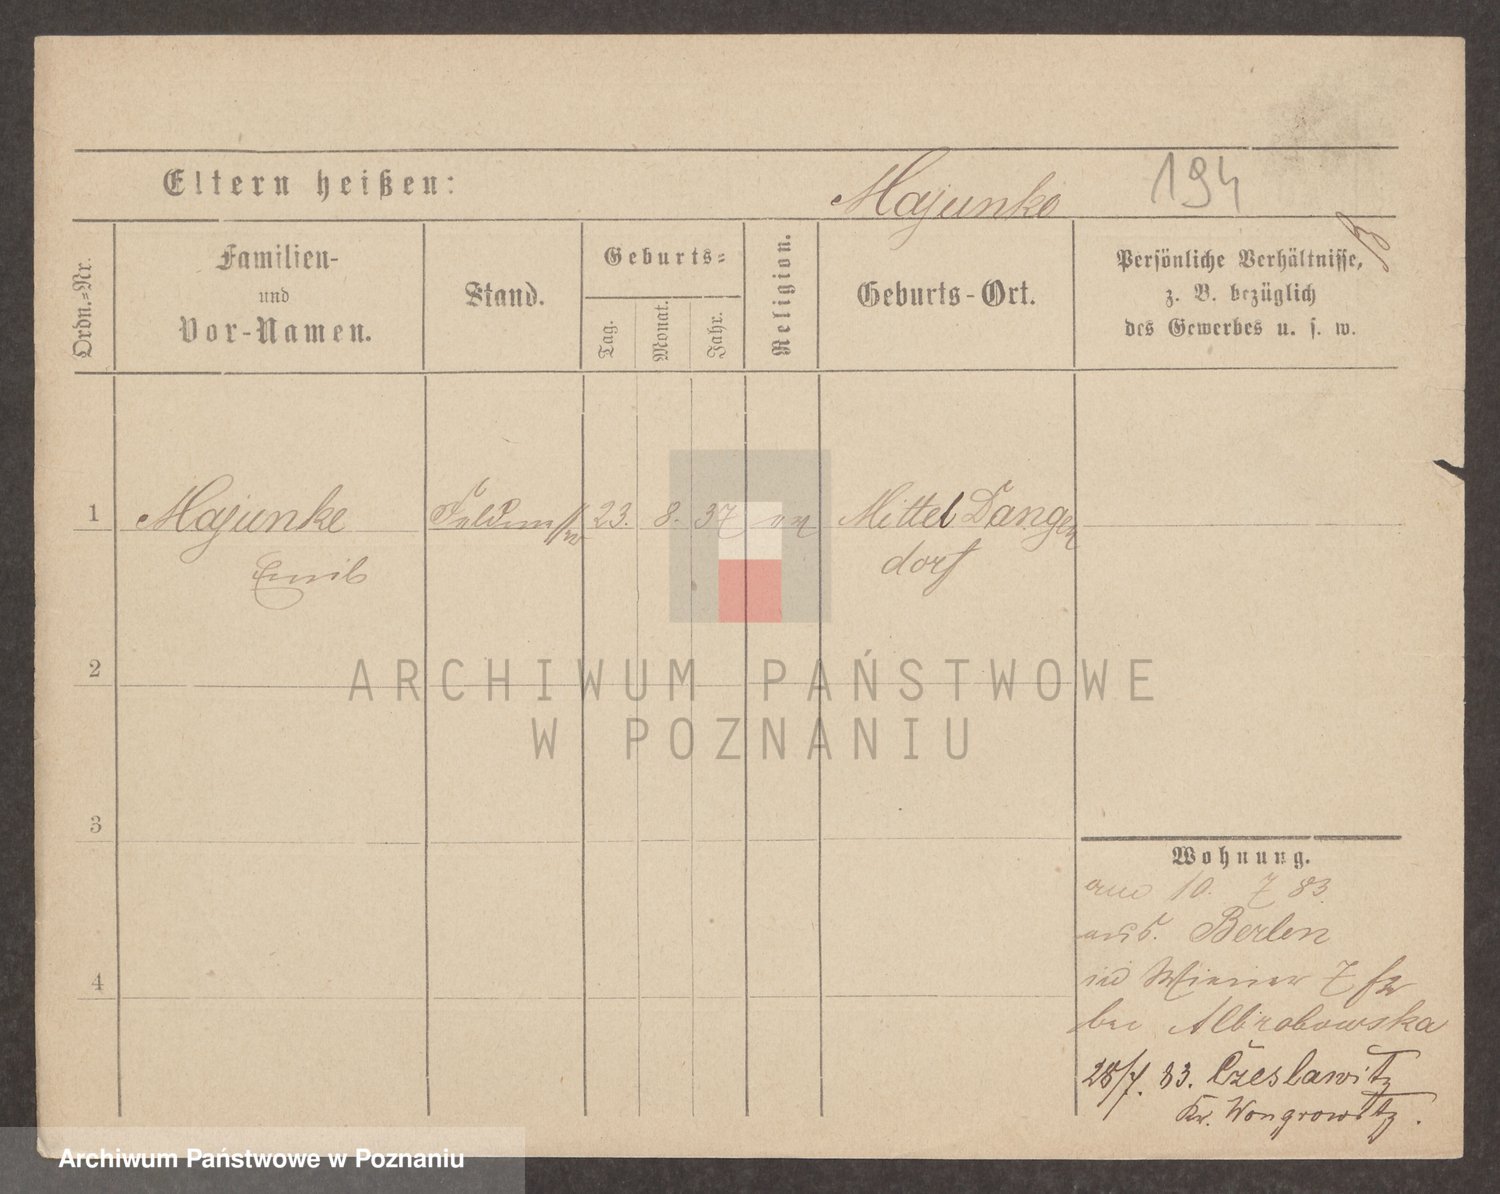 Eltern heißen:
Majunke
194
Ordn.=Nr.
Familien-
und
Vor-Namen.
Stand.
Geburts=
Tag.
Monat.
Jahr.
Religion.
Geburts-Ort.
Persönliche Verhältnisse,
z. B. bezüglich
des Gewerbes u. s. w.
1
Majunke
Emil
23.
8.
37
Mittel Dangen
dorf
2
3
4
Wohnung.
10. 7 83.
aus. Berlin
in Wiener 7
bei
28/7. 83. Czeslawitz
Kr. Wongrowitz.
ARCHIWUM PAŃSTWOWE
W POZNANIU
Archiwum Państwowe w Poznaniu